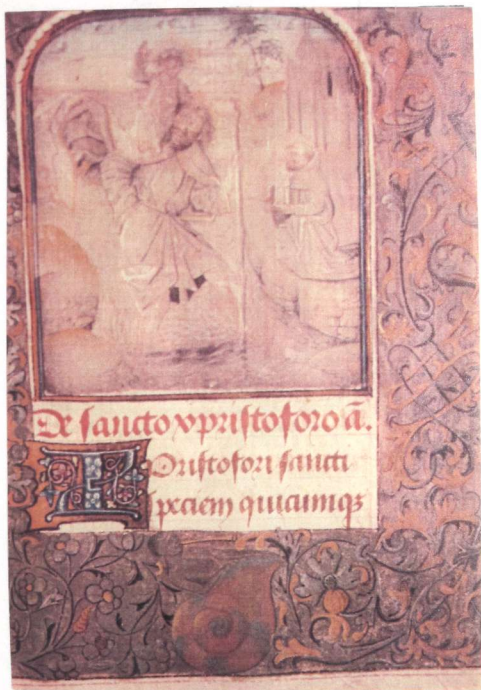 De sancto xpristoforo ā.
Xpristofori sancti
speciem quicumqꝫ